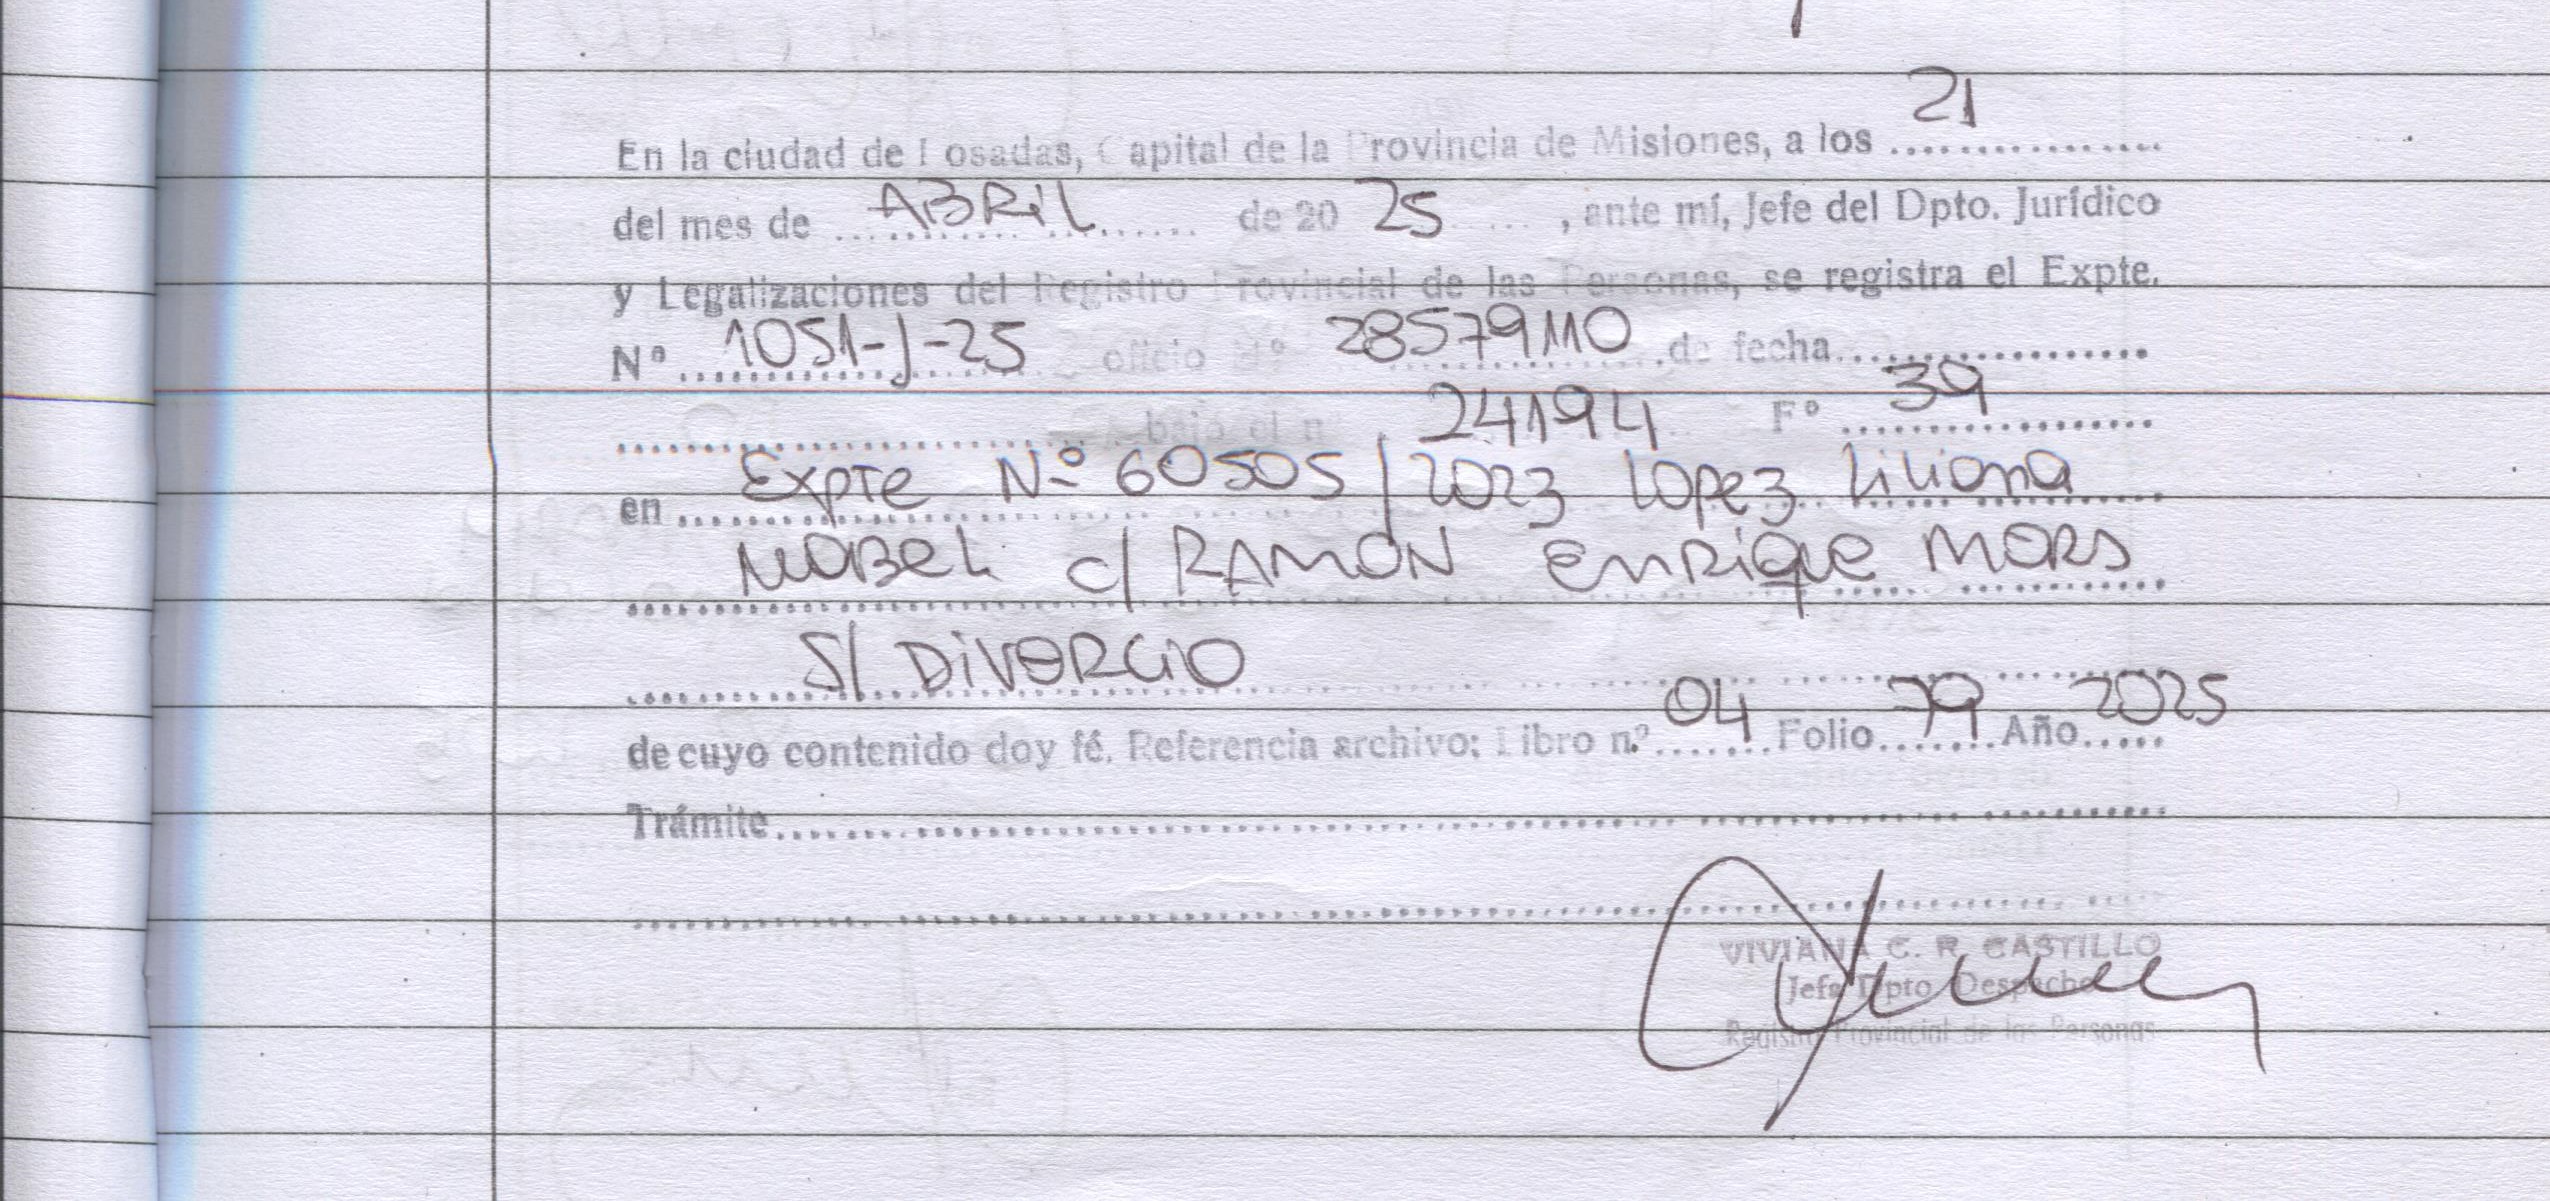 21
En la ciudad de Posadas, Capital de la Provincia de Misiones, a los ................
del mes de ABRiL de 20 25 , ante mí, Jefe del Dpto. Jurídico
y Legalizaciones del Registro Provincial de las Personas, se registra el Expte.
Nº 1051-J-25 oficio Nº 28579110 de fecha
bajo el n 24194 Fº 39
en Expte Nº 60505/2023 Lopez Liliana
MABEL c/ RAMON ENRiQUE MORS
S/ DiVORCiO
de cuyo contenido doy fé. Referencia archivo: Libro n.º 04 Folio 79 Año 2025
Trámite
VIVIANA C. R. CASTILLO
Jefa Dpto Despacho
Registro Provincial de las Personas